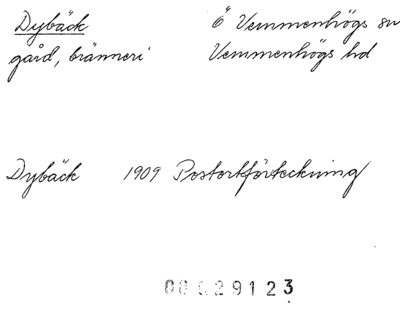 Dybäck Ö Vemmenhögs sn
gård, bränneri Vemmenhögs hd
Dybäck 1909 Postortförteckning
00029123